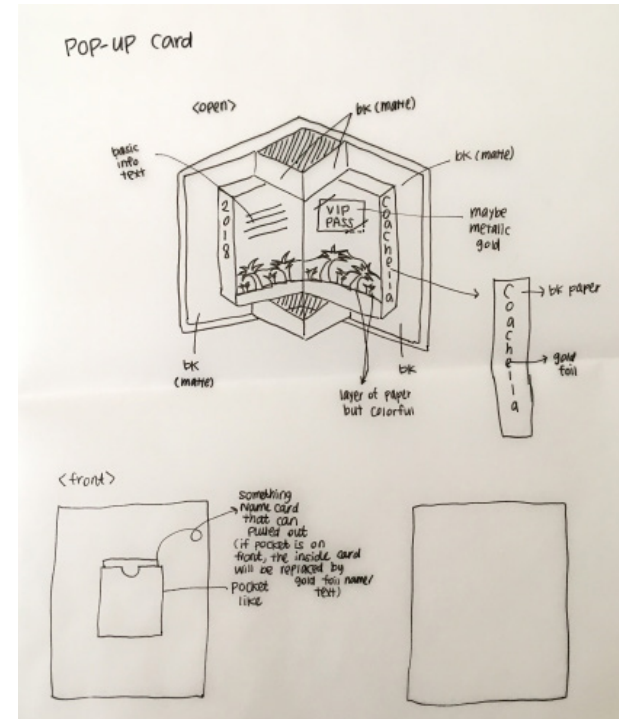 POP-UP Card
<open>
bk (matte)
basic
info
text
bk (matte)
2018
VIP
PASS
Coachella
maybe
metallic
gold
Coachella
bk paper
gold
foil
bk
(matte)
bk
layer of paper
but colorful
<front>
something
name card
that can
pulled out
(if pocket is on
front, the inside card
will be replaced by
gold foil name/
text)
pocket
like